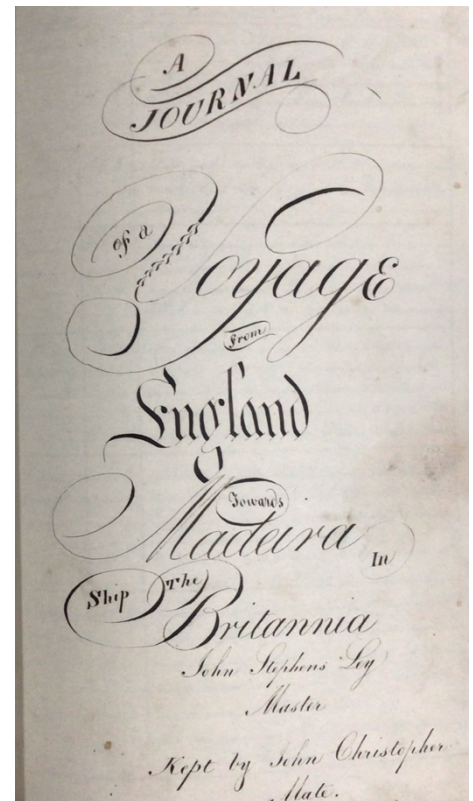 A
JOURNAL
of a
Voyage
from
England
Towards
Madeira
In
Ship The
Britannia
John Stephens Ley
Master
Kept by John Christopher
Mate.